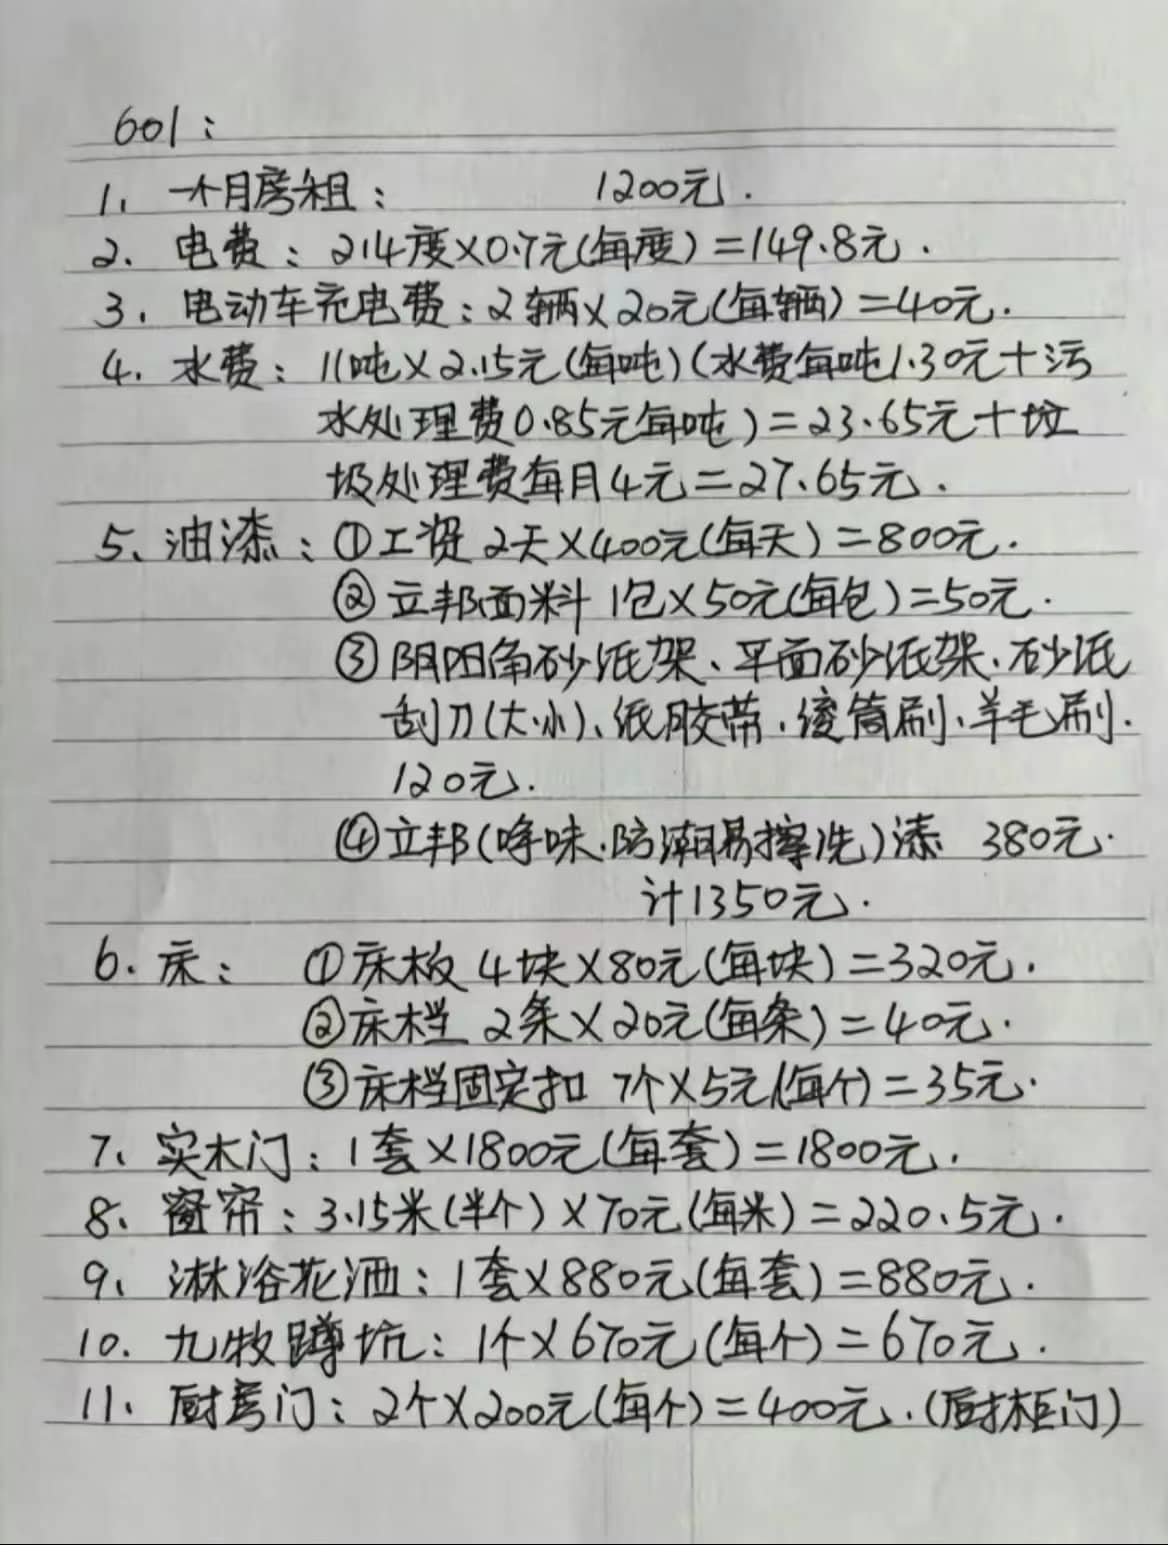 601:
1、一个月房租: 1200元.
2. 电费: 214度×0.7元(每度)=149.8元.
3. 电动车充电费:2辆×20元(每辆)=40元.
4. 水费: 11吨×2.15元(每吨)(水费每吨1.30元+污
水处理费0.85元每吨)=23.65元+垃
圾处理费每月4元=27.65元.
5、油漆: ①工资 2天×400元(每天)=800元.
②立邦面料 1包×50元(每包)=50元.
③阴阳角砂纸架、平面砂纸架、砂纸
刮刀(大.小)、纸胶带.滚筒刷、羊毛刷.
120元.
④立邦(净味.防潮易擦洗)漆 380元.
计1350元.
6. 床: ①床板 4块×80元(每块)=320元.
②床档 2条×20元(每条)=40元.
③床档固定扣 7个×5元(每个)=35元.
7、实木门: 1套×1800元(每套)=1800元.
8、窗帘: 3.15米(半个)×70元(每米)=220.5元.
9、淋浴花洒: 1套×880元(每套)=880元.
10. 九牧蹲坑: 1个×670元(每个)=670元.
11、厨房门: 2个×200元(每个)=400元.(厨柜门)